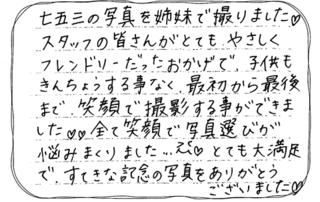 七五三の写真を姉妹で撮りました♡
スタッフの皆さんがとても、やさしく
フレンドリーだったおかげで、子供も
きんちょうする事なく、最初から最後
まで、笑顔で撮影する事ができま
した♡♡全て笑顔で写真選びが
悩みまくりました...とても大満足
で、すてきな記念の写真をありがとう
ございました♡